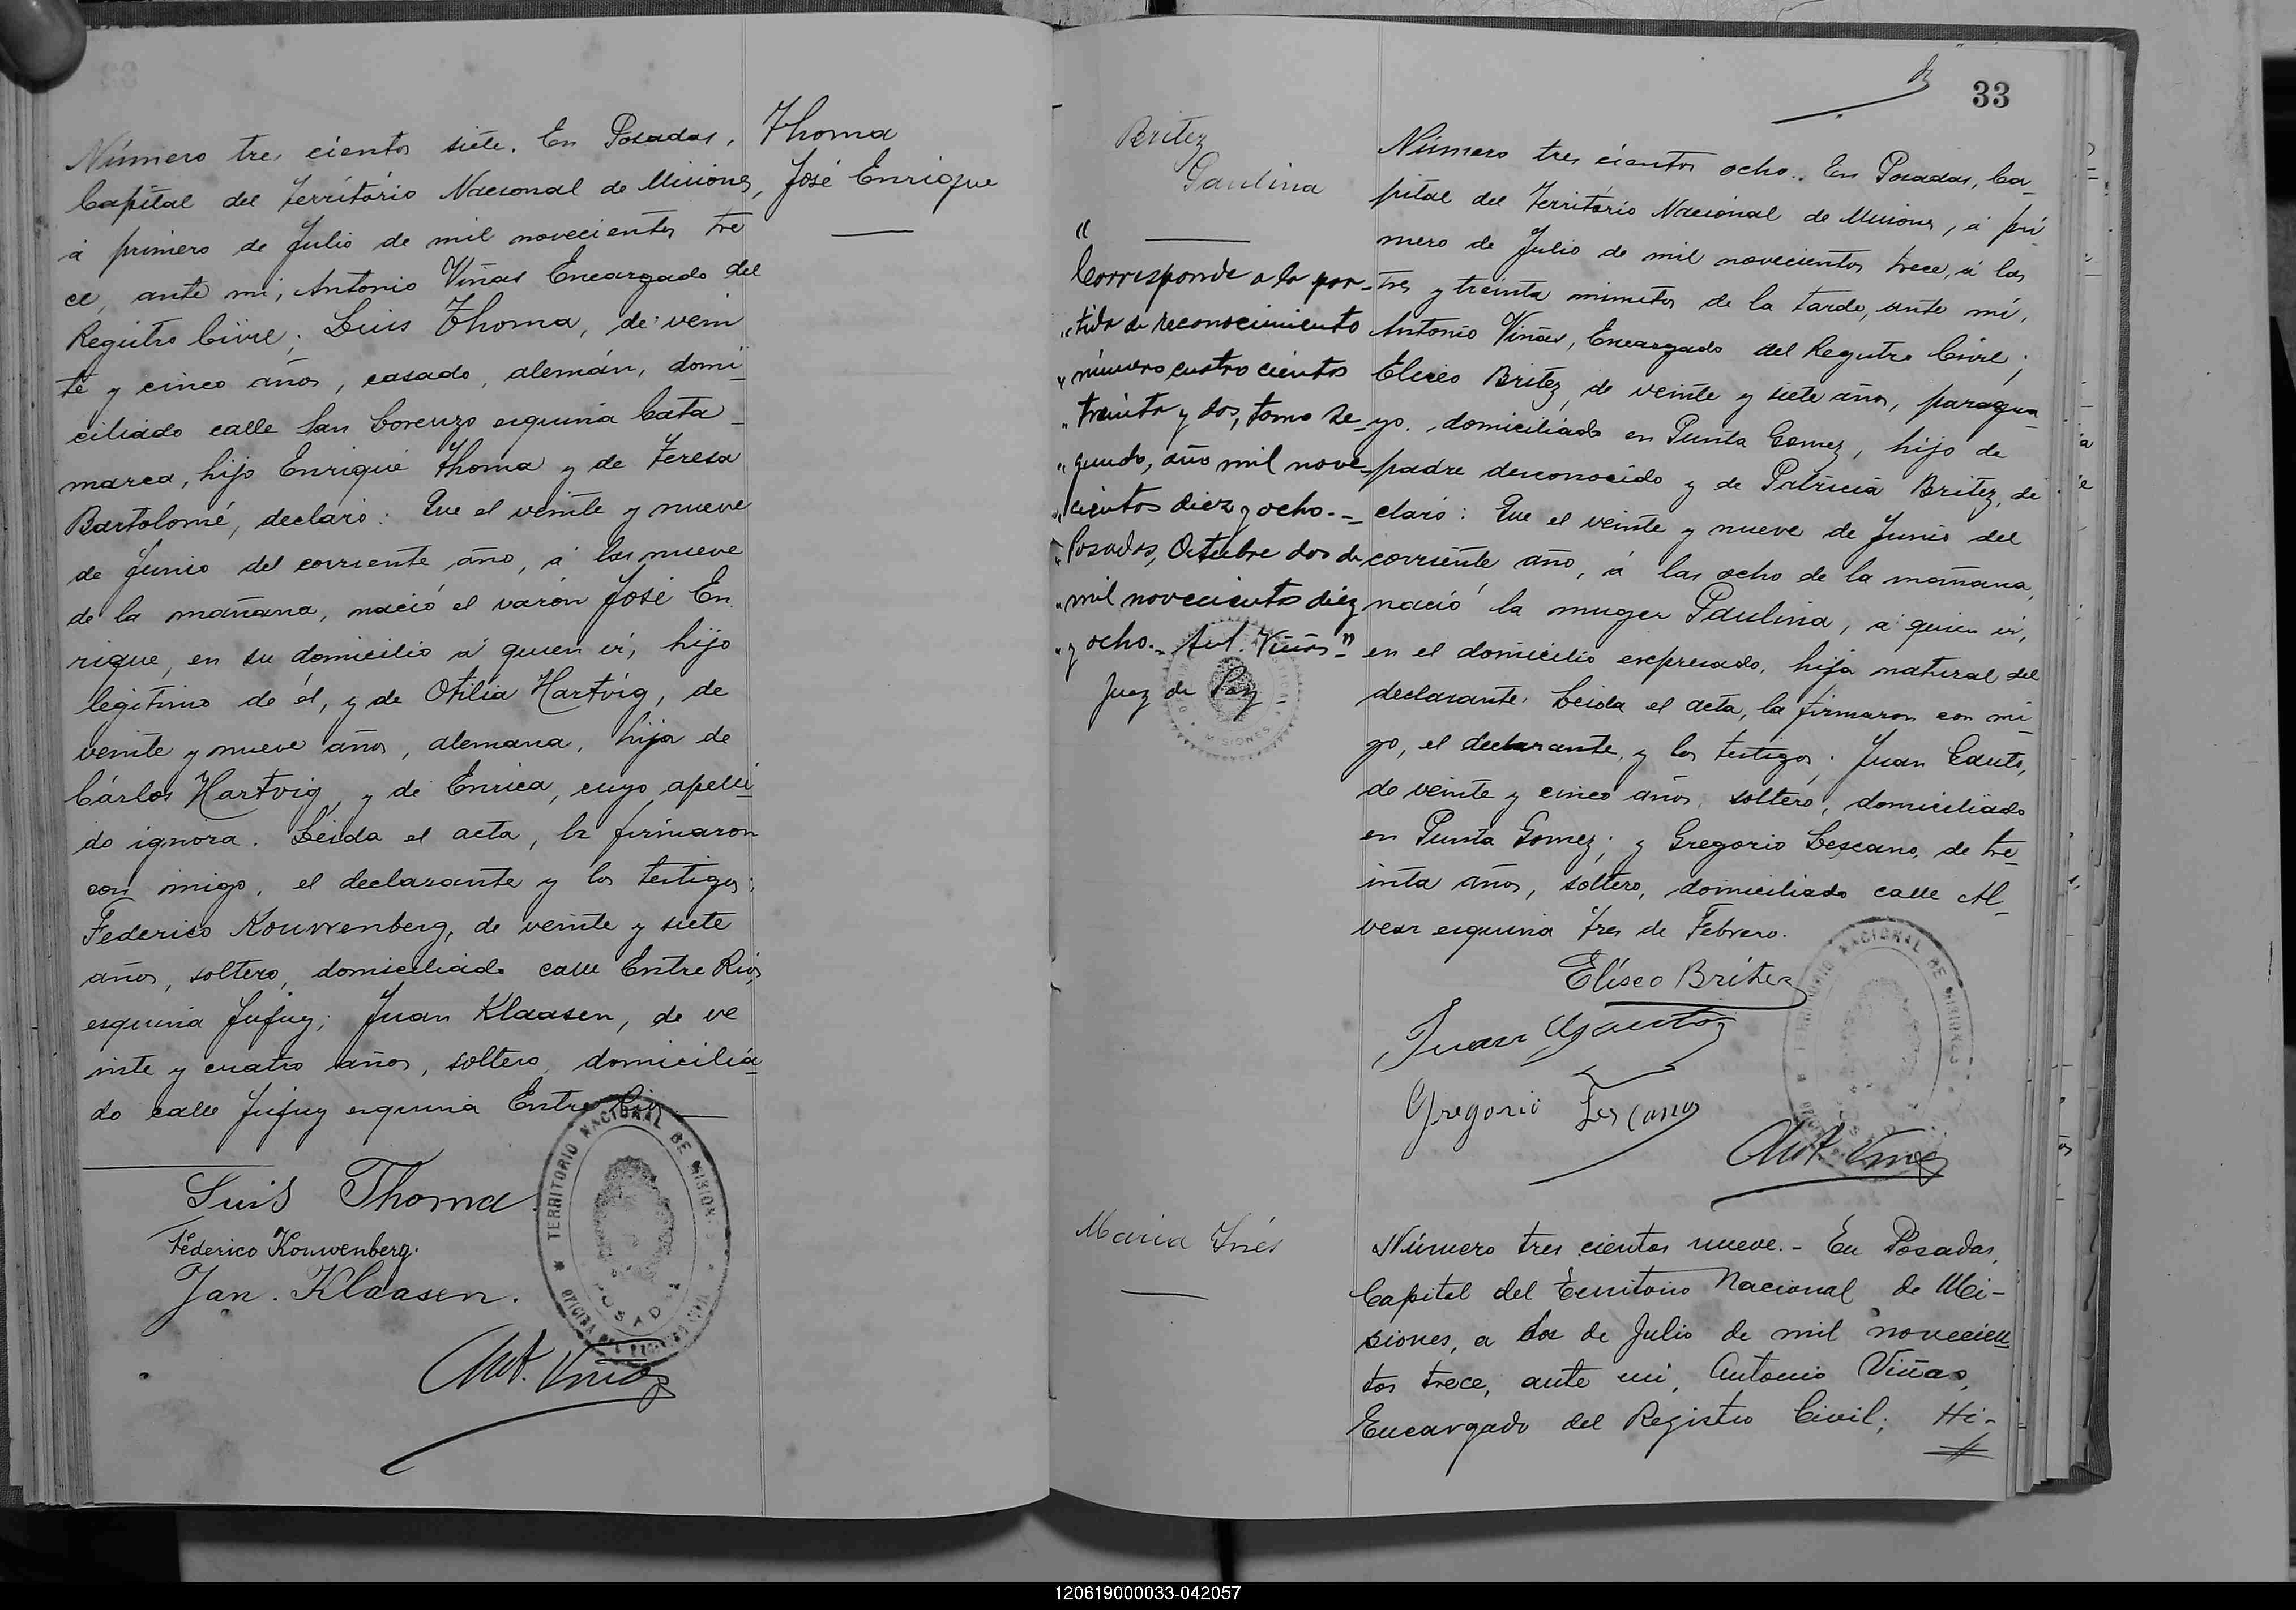 Número tres cientos siete. En Posadas,
Capital del Territorio Nacional de Misiones,
á primero de Julio de mil novecientos tre
ce, ante mi, Antonio Viñas Encargado del
Registro Civil; Luis Thoma, de vein
te y cinco años, casado, alemán, domi-
ciliado calle San Lorenzo esquina Cata-
marca, hijo Enrique Thoma y de Teresa
Bartolomé, declaró: Que el veinte y nueve
de Junio del corriente año, á las nueve
de la mañana, nació el varón José En
rique, en su domicilio á quien ví, hijo
legítimo de él, y de Otilia Hartvig, de
veinte y nueve años, alemana, hija de
Cárlos Hartvig, y de Enrica, cuyo apelli-
do ignora. Leida el acta, la firmaron
con migo, el declarante y los testigos;
Federico Kouwenberg, de veinte y siete
años, soltero, domiciliado calle Entre Rios
esquina Jujuy; Juan Klaasen, de ve
inte y cuatro años, soltero, domicilia-
do calle Jujuy esquina Entre Rios
Luis Thoma
Federico Kouwenberg.
Jan. Klaasen.
Ant. Viñas
TERRITORIO NACIONAL DE MISIONES
POSADAS
Thoma
José Enrique
33
Britez
Paulina
"
Corresponde a la par-
"tida de reconocimiento
"número cuatro cientos
"treinta y dos, tomo se-
"gundo, año mil nove-
"cientos diez y ocho.-
"Posadas, Octubre dos de
"mil novecientos diez
"y ocho.- Ant. Viñas"
Juez de Paz
MISIONES
Número tres cientos ocho. En Posadas, Ca-
pital del Territorio Nacional de Misiones, á pri
mero de Julio de mil novecientos trece, á las
tres y treinta minutos de la tarde, ante mí,
Antonio Viñas, Encargado del Registro Civil;
Eliseo Britez, de veinte y siete años, paragua-
yo, domiciliado en Punta Gomez, hijo de
padre desconocido y de Patricia Britez, de
claró: Que el veinte y nueve de Junio del
corriente año, á las ocho de la mañana,
nació la muger Paulina, á quien ví,
en el domicilio expresado, hija natural del
declarante. Leida el acta, la firmaron con mi
go, el declarante, y los testigos; Juan Gauto,
de veinte y cinco años, soltero, domiciliado
en Punta Gomez; y Gregorio Lescano, de tre-
inta años, soltero, domiciliado calle Al-
vear esquina tres de Febrero.
Eliseo Britez
Juan Gauto
Gregorio Lescano
Ant. Viñas
TERRITORIO NACIONAL DE MISIONES
Maria Inés
Número tres cientos nueve.- En Posadas,
Capital del Territorio Nacional de Mi-
siones, a dos de Julio de mil novecien-
tos trece, ante mi, Antonio Viñas,
Encargado del Registro Civil; Hi-
120619000033-042057